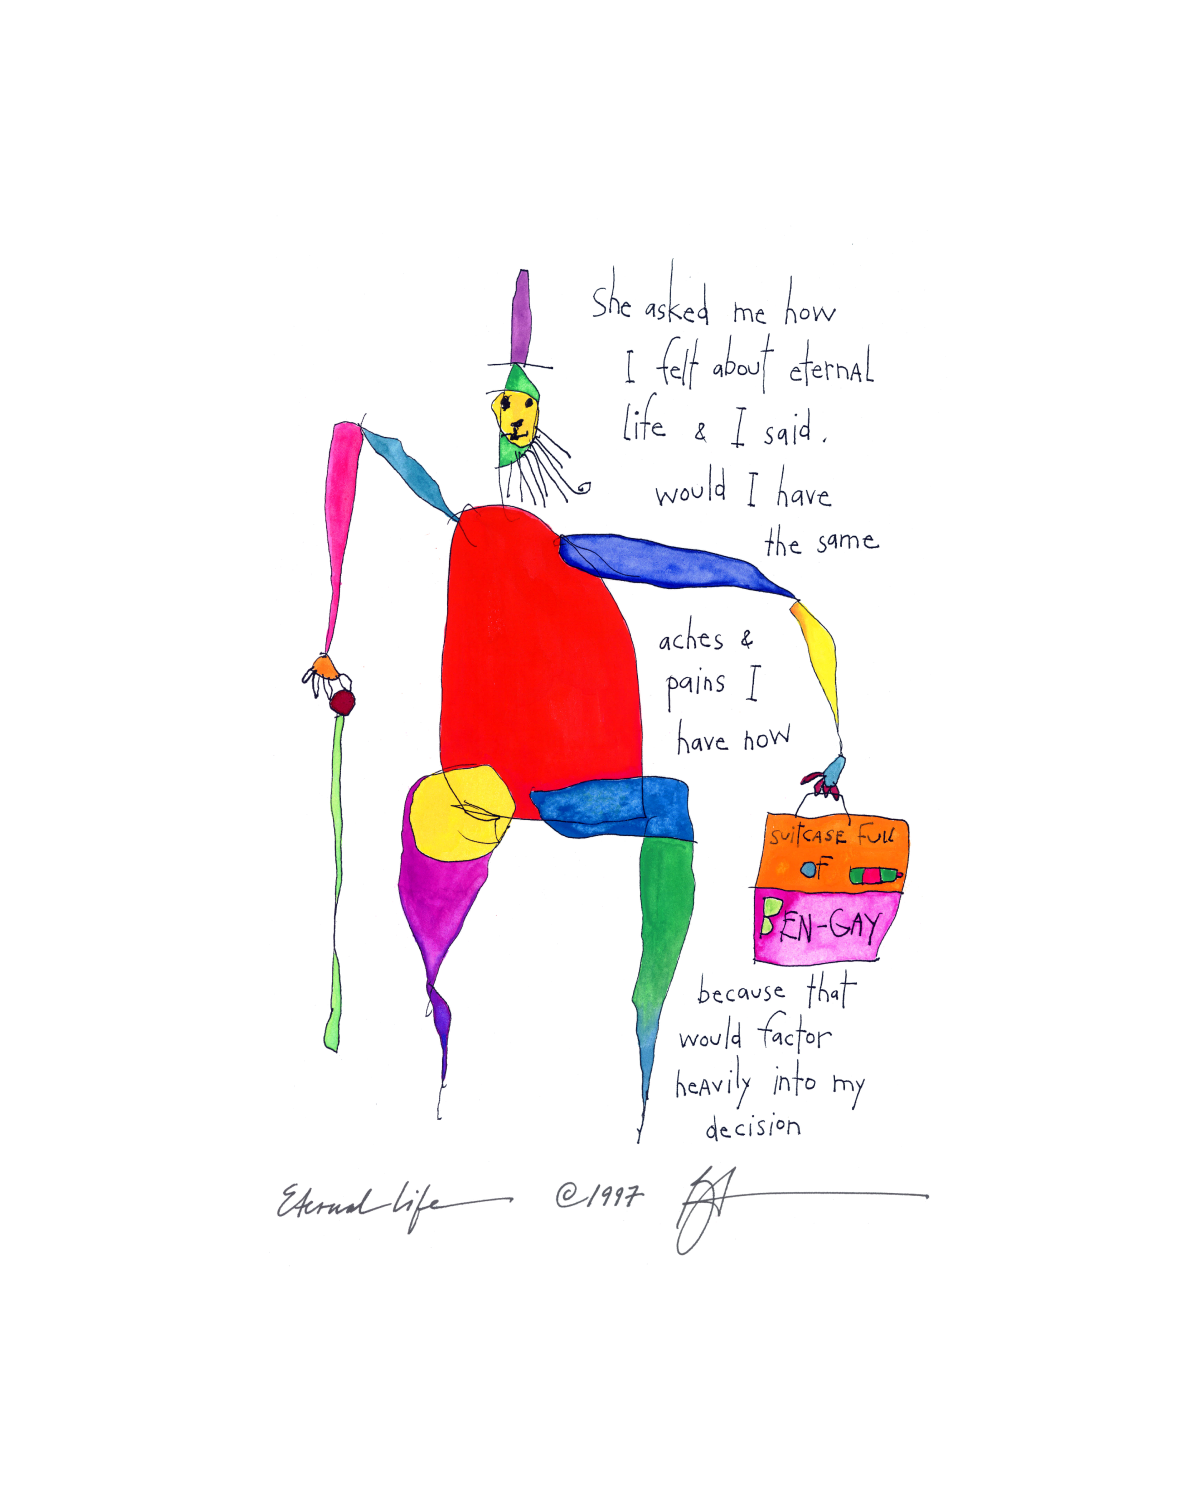 She asked me how
I felt about eternal
life & I said,
would I have
the same
aches &
pains I
have now
SUITCASE FULL
OF
BEN-GAY
because that
would factor
heavily into my
decision
Eternal Life ©1997